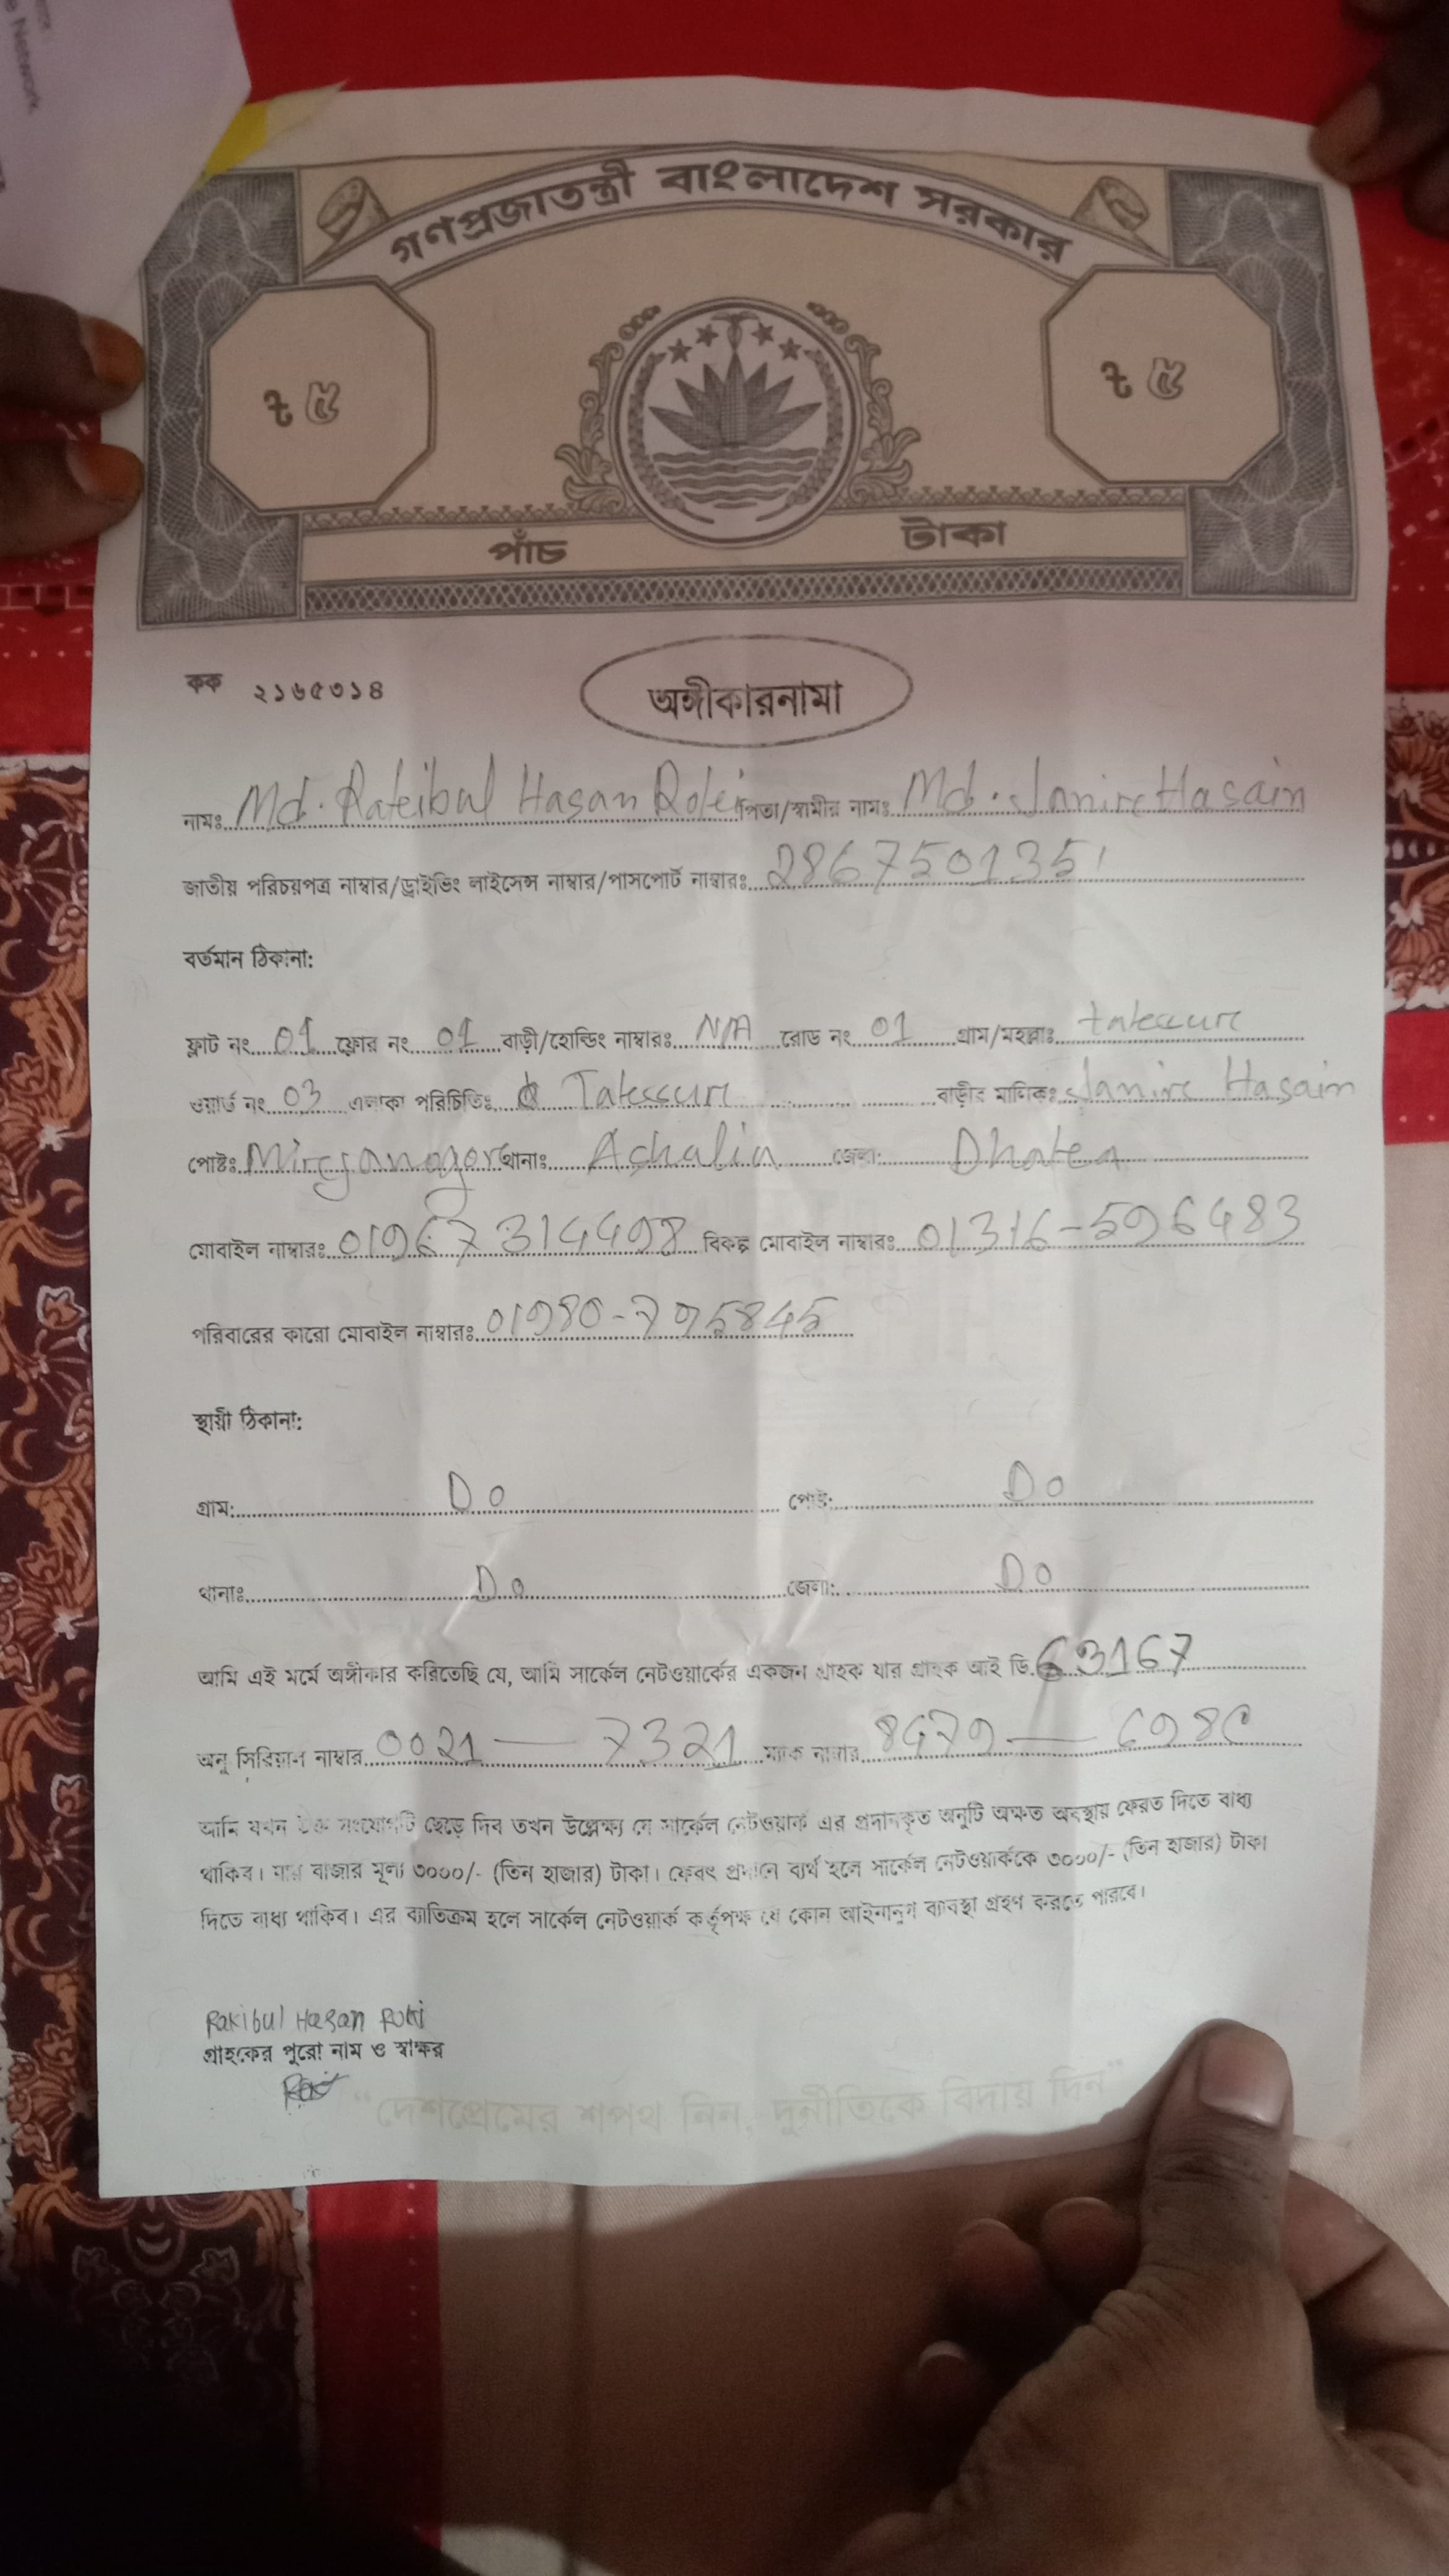 Network
গণপ্রজাতন্ত্রী বাংলাদেশ সরকার
৳ ৫ ৳ ৫
পাঁচ টাকা
কক ২১৬৫৩১৪
অঙ্গীকারনামা
নামঃ Md. Rakibul Hasan Roki পিতা/স্বামীর নামঃ Md. Jamir Hasain
জাতীয় পরিচয়পত্র নাম্বার/ড্রাইভিং লাইসেন্স নাম্বার/পাসপোর্ট নাম্বারঃ 2867501351
বর্তমান ঠিকানা:
ফ্লাট নং 01 ফ্লোর নং 01 বাড়ী/হোল্ডিং নাম্বারঃ N/A রোড নং 01 গ্রাম/মহল্লাঃ
ওয়ার্ড নং 03 এলাকা পরিচিতিঃ বাড়ীর মালিকঃ Jamir Hasain
পোষ্টঃ Mirjanagor থানাঃ Ashalia জেলা: Dhaka
মোবাইল নাম্বারঃ 01967314498 বিকল্প মোবাইল নাম্বারঃ 01316-596483
পরিবারের কারো মোবাইল নাম্বারঃ 01980-795845
স্থায়ী ঠিকানা:
গ্রাম: Do পোষ্ট: Do
থানাঃ Do জেলা: Do
আমি এই মর্মে অঙ্গীকার করিতেছি যে, আমি সার্কেল নেটওয়ার্কের একজন গ্রাহক যার গ্রাহক আই ডি 63167
অনু সিরিয়াল নাম্বার 0021 — 7321 ম্যাক নাম্বার 8479 — 6980
আমি যখন উক্ত সংযোগটি ছেড়ে দিব তখন উল্লেক্ষ্য যে সার্কেল নেটওয়ার্ক এর প্রদানকৃত অনুটি অক্ষত অবস্থায় ফেরত দিতে বাধ্য
থাকিব। যার বাজার মূল্য ৩০০০/- (তিন হাজার) টাকা। ফেরৎ প্রদানে ব্যর্থ হলে সার্কেল নেটওয়ার্ককে ৩০০০/- (তিন হাজার) টাকা
দিতে বাধ্য থাকিব। এর ব্যাতিক্রম হলে সার্কেল নেটওয়ার্ক কর্তৃপক্ষ যে কোন আইনানুগ ব্যাবস্থা গ্রহণ করতে পারবে।
Rakibul Hasan Roki
গ্রাহকের পুরো নাম ও স্বাক্ষর
"দেশপ্রেমের শপথ নিন, দুর্নীতিকে বিদায় দিন"